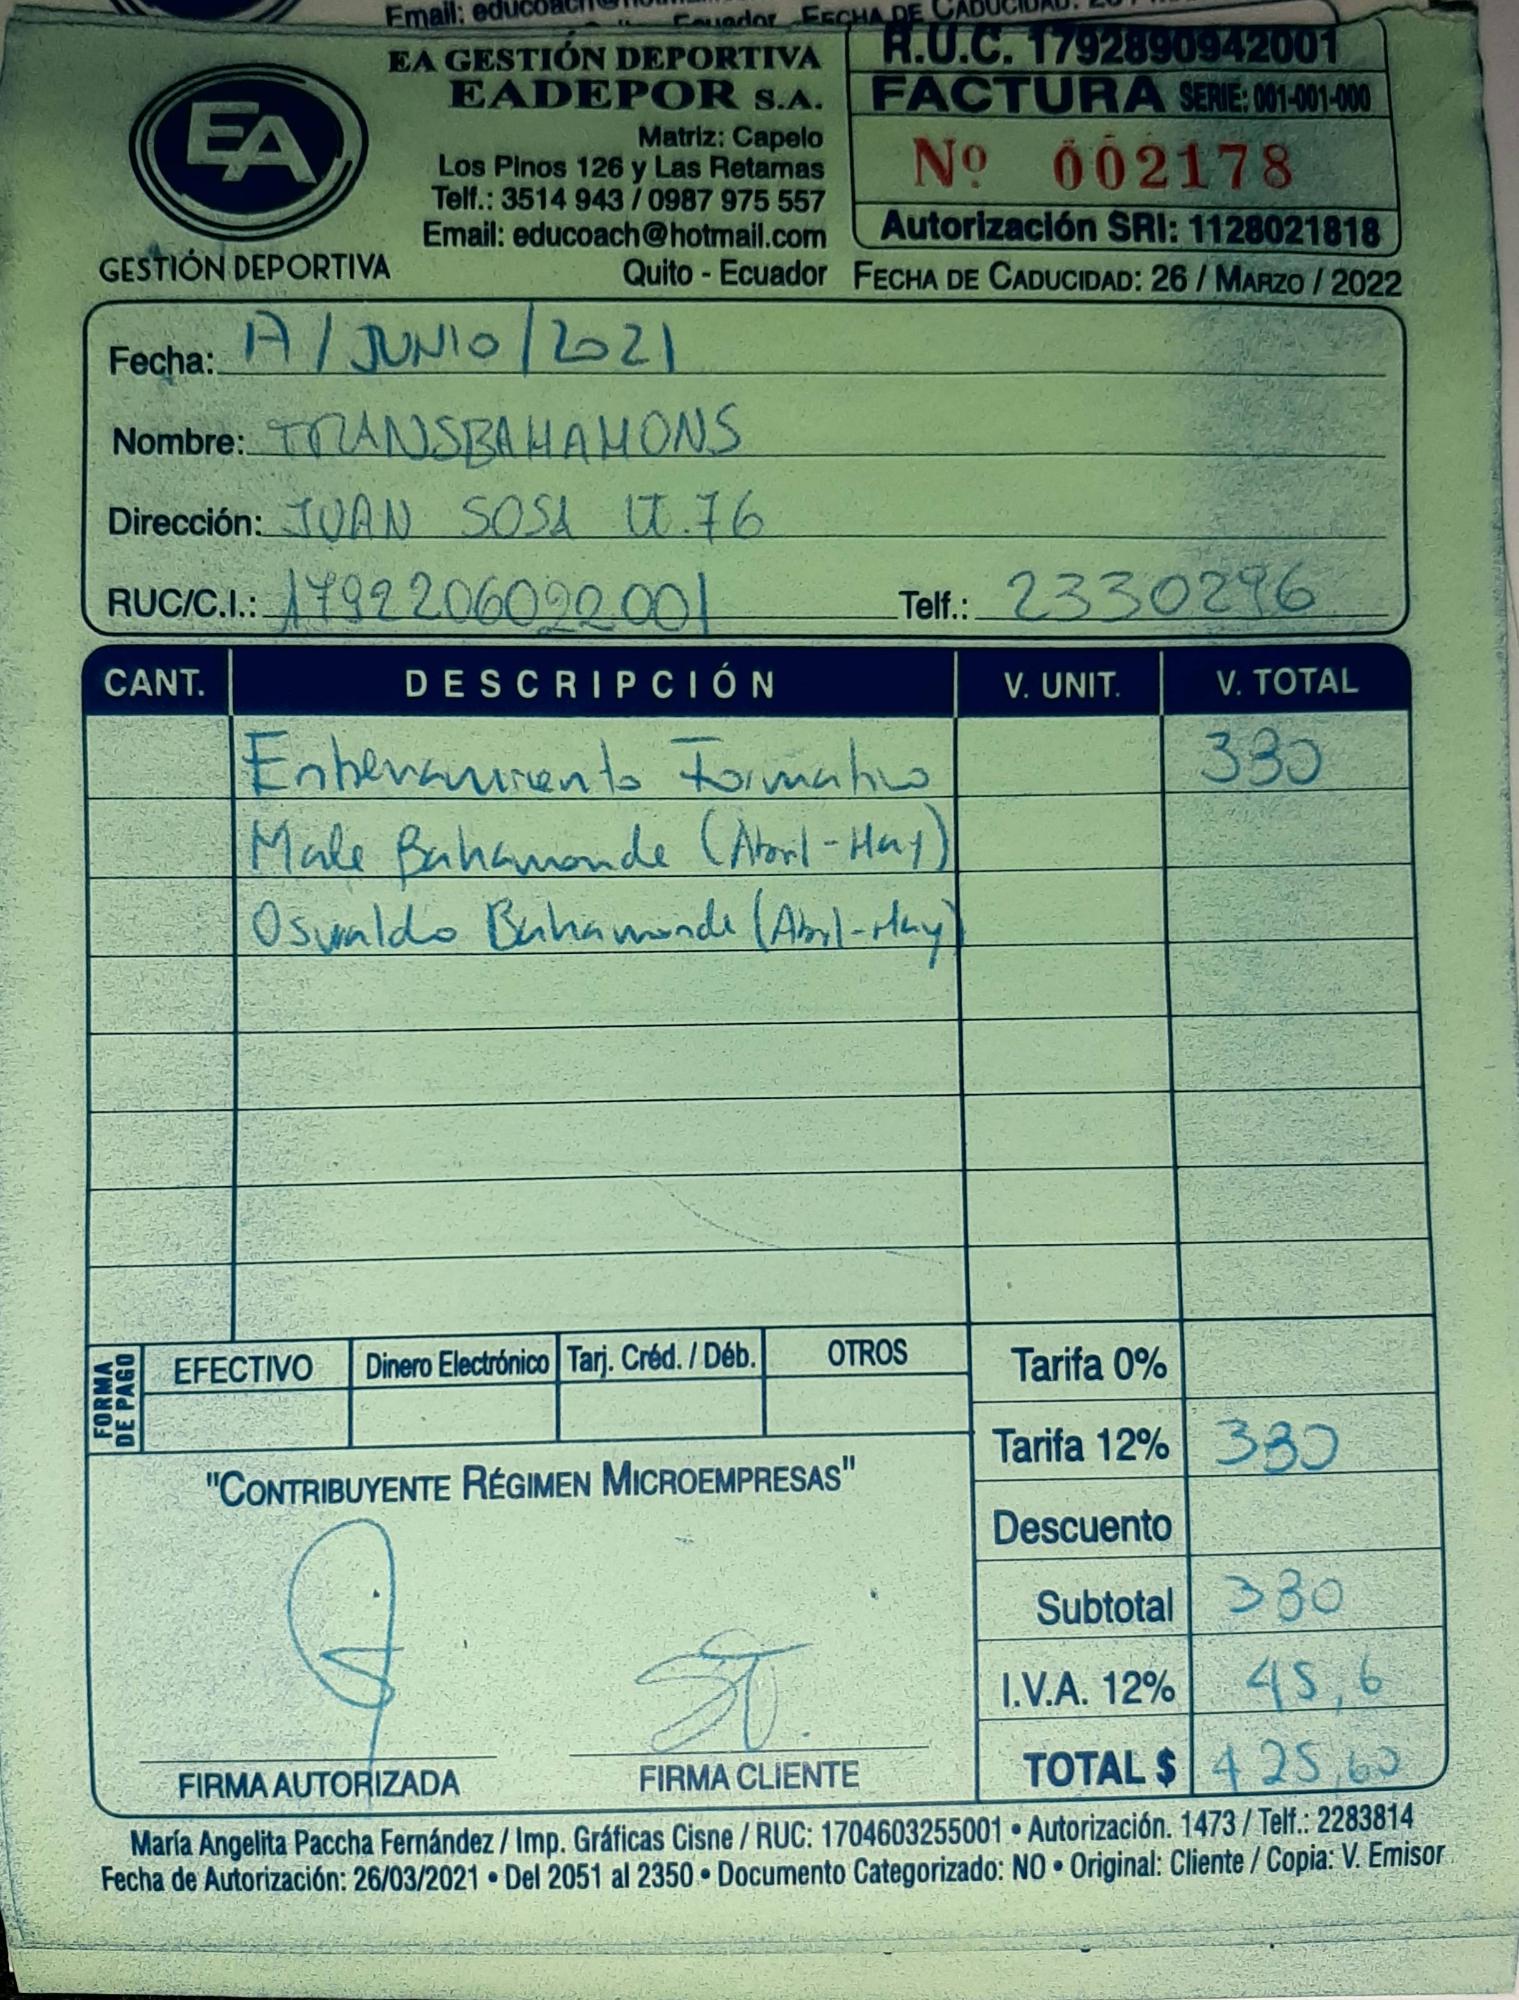 EA GESTIÓN DEPORTIVA
EADEPOR S.A.
Matriz: Capelo
Los Pinos 126 y Las Retamas
Telf.: 3514 943 / 0987 975 557
Email: educoach@hotmail.com
Quito - Ecuador
EA
GESTIÓN DEPORTIVA
R.U.C. 1792890942001
FACTURA SERIE: 001-001-000
Nº 002178
Autorización SRI: 1128021818
FECHA DE CADUCIDAD: 26 / MARZO / 2022
Fecha: 17 / JUNIO / 2021
Nombre: TRANSBAHAMONS
Dirección: JUAN SOSA 76
RUC/C.I.: 1792206022001 Telf.: 2330296
CANT. DESCRIPCIÓN V. UNIT. V. TOTAL
Entrenamiento Formativo 380
Male Bahamonde (Abril-May)
Osvaldo Bahamonde (Abril-May)
FORMA DE PAGO
EFECTIVO Dinero Electrónico Tarj. Créd. / Déb. OTROS
Tarifa 0%
Tarifa 12% 380
Descuento
Subtotal 380
I.V.A. 12% 45,6
TOTAL $ 425,60
"CONTRIBUYENTE RÉGIMEN MICROEMPRESAS"
FIRMA AUTORIZADA FIRMA CLIENTE
María Angelita Paccha Fernández / Imp. Gráficas Cisne / RUC: 1704603255001 • Autorización. 1473 / Telf.: 2283814
Fecha de Autorización: 26/03/2021 • Del 2051 al 2350 • Documento Categorizado: NO • Original: Cliente / Copia: V. Emisor